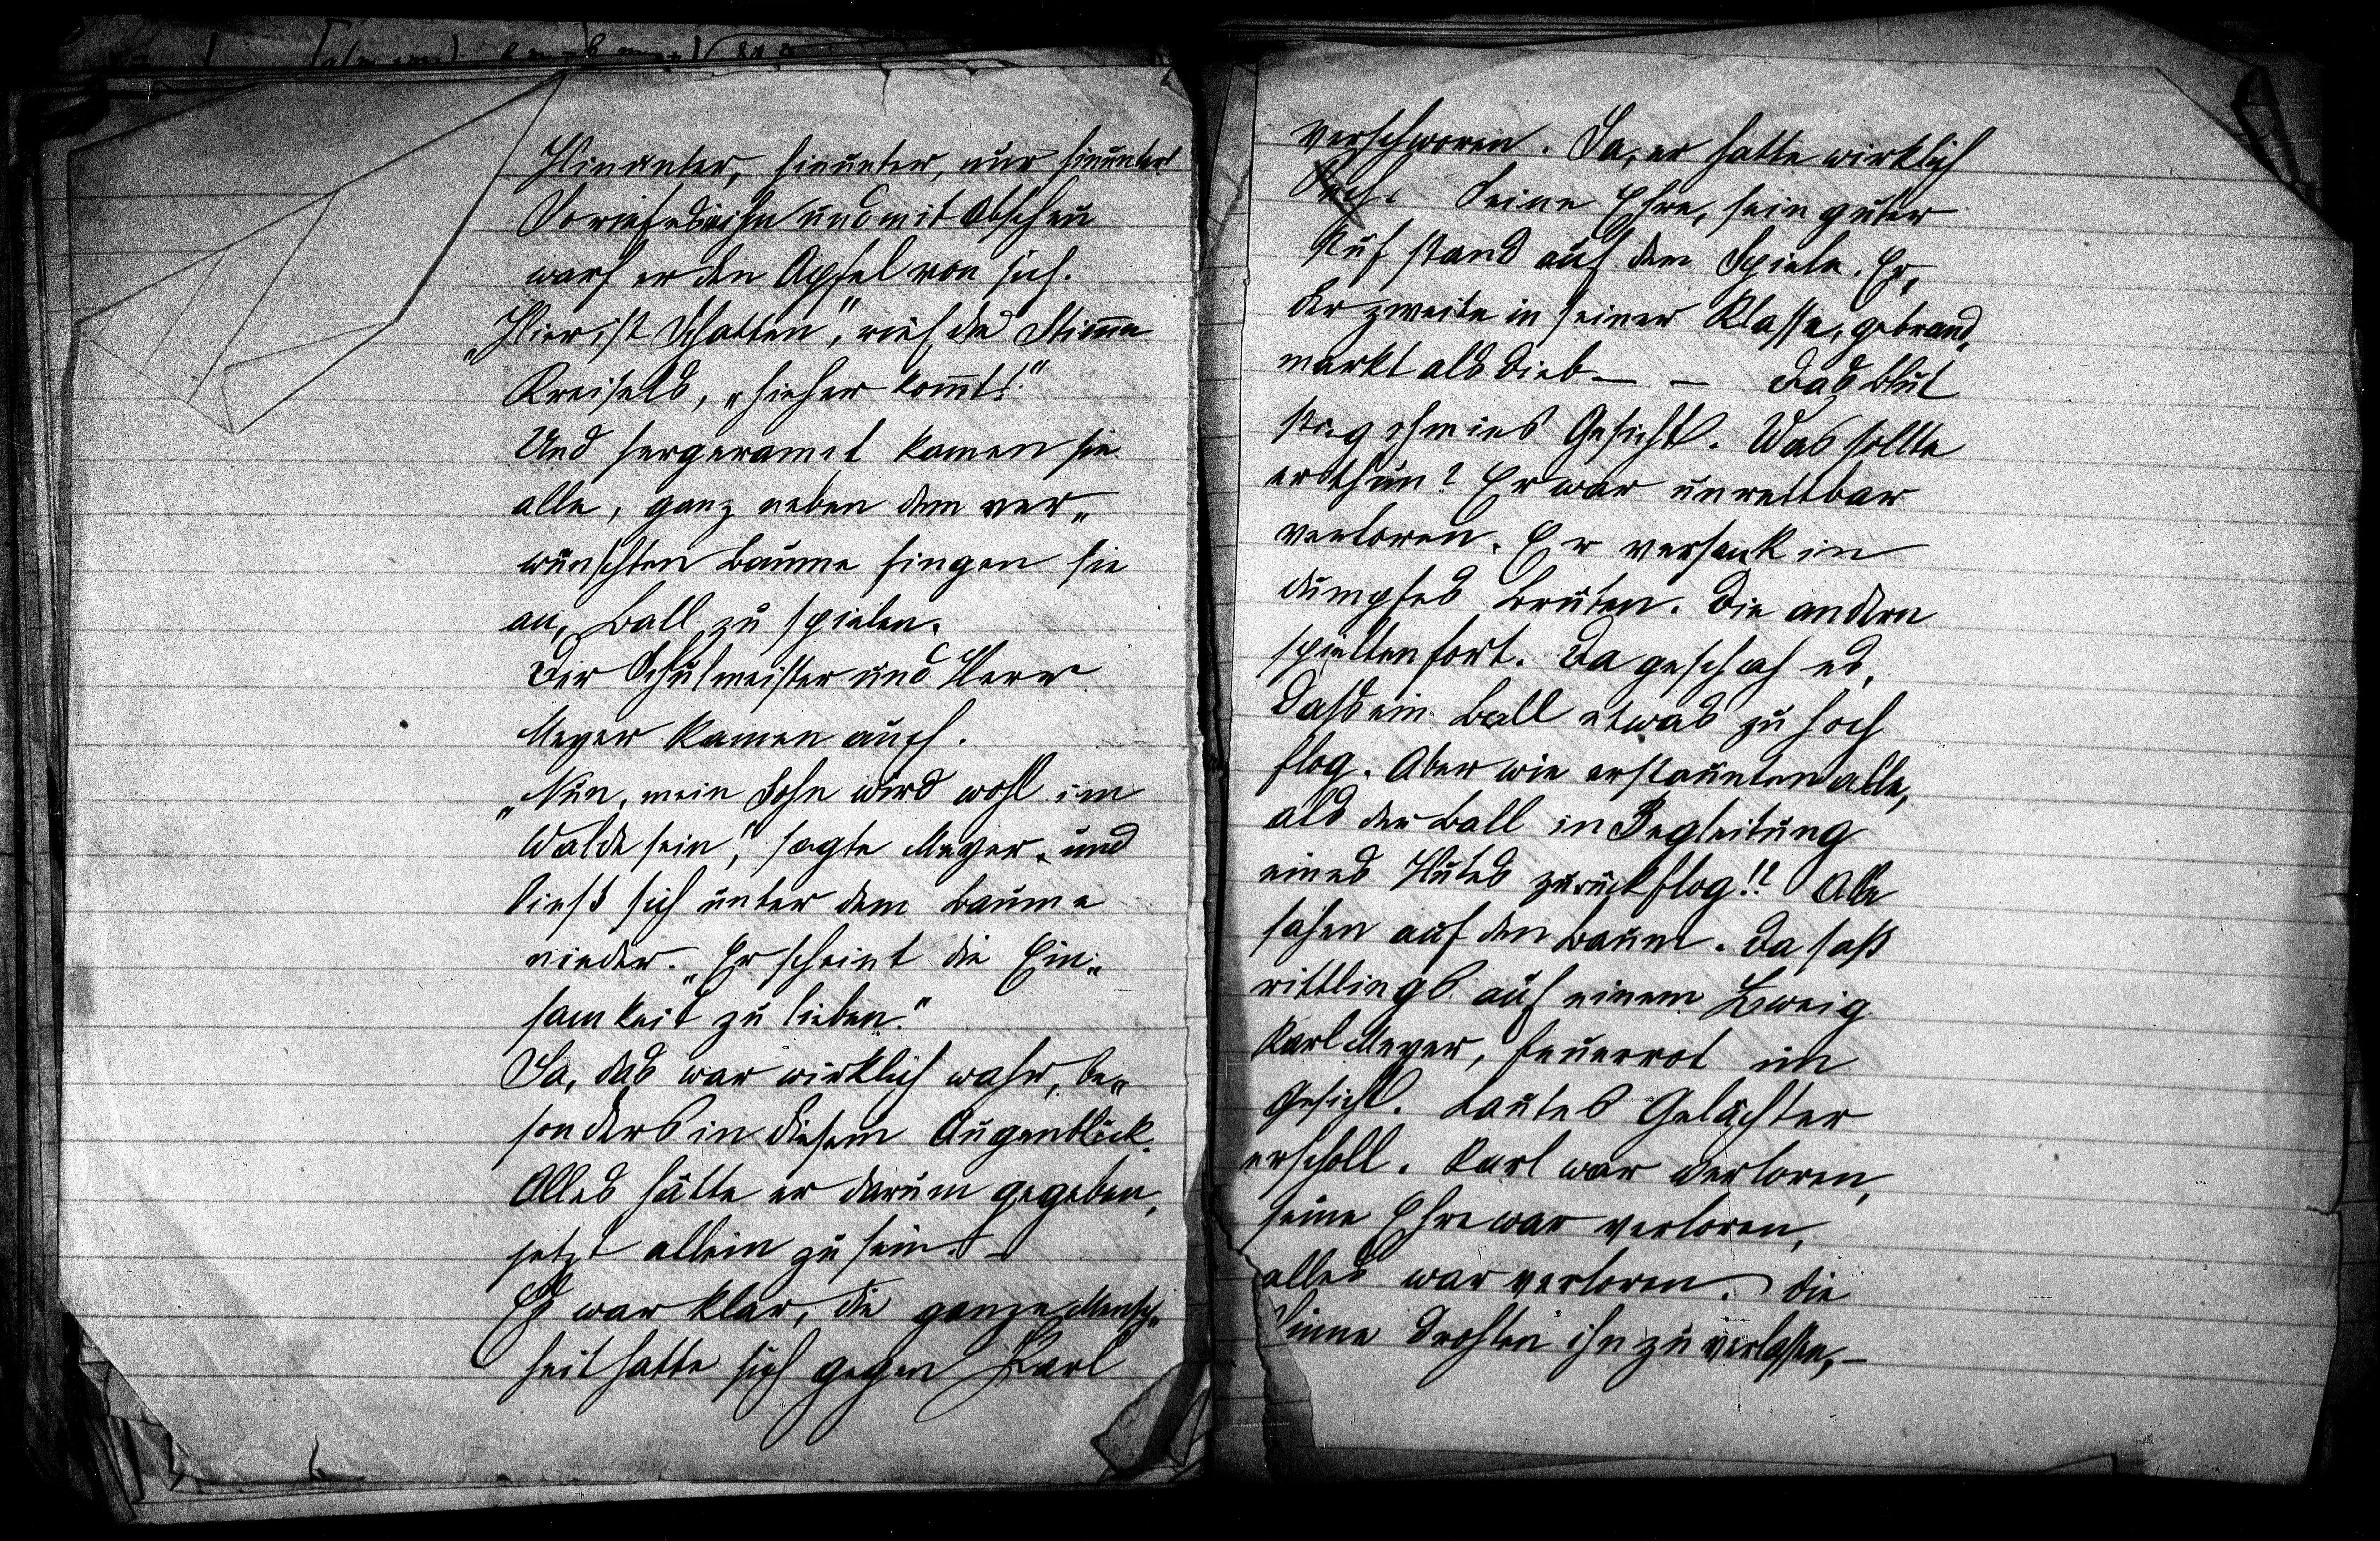 Hinunter, hinunter, nur hinunter!
So rief es in ihm und mit Abscheu
warf er den Apfel von sich.
„Hier ist Schatten", rief die Stimme
Kreisels, „hieher kommt!"
Und hergerannt kamen sie
alle, ganz neben dem ver„
wünschten Baume fingen sie
an, Ball zu spielen.
Der Schulmeister und Herr
Meyer kamen auch.
„Nun, mein Sohn wird wohl im
Walde sein", sagte Meyer und
ließ sich unter dem Baume
nieder. „Er scheint die Ein„
samkeit zu lieben."
Ja, das war wirklich wahr, be„
sonders in diesem Augenblick.
Alles hätte er darum gegeben,
jetzt allein zu sein. –
Es war klar, die ganze Mensch„
heit hatte sich gegen Karl
verschworen. Ja, er hatte wirklich
Pech. Seine Ehre, sein guter
Ruf stand auf dem Spiele. Er,
der zweite in seiner Klasse, gebrand„
markt als Dieb – – Das Blut
stieg ihm ins Gesicht. Was sollte
er thun? Er war unrettbar
verloren. Er versank in
dumpfes Brüten. Die andern
spielten fort. Da geschah es,
daß ein Ball etwas zu hoch
flog. Aber wie erstaunten alle,
als der Ball in Begleitung
eines Hutes zurückflog!! Alle
sahen auf den Baum. Da saß
rittlings auf einem Zweig
Karl Meyer, feuerrot im
Gesicht. Lautes Gelächter
erscholl. Karl war verloren,
seine Ehre war verloren,
alles war verloren. Die
Sinne drohten ihn zu verlassen, –